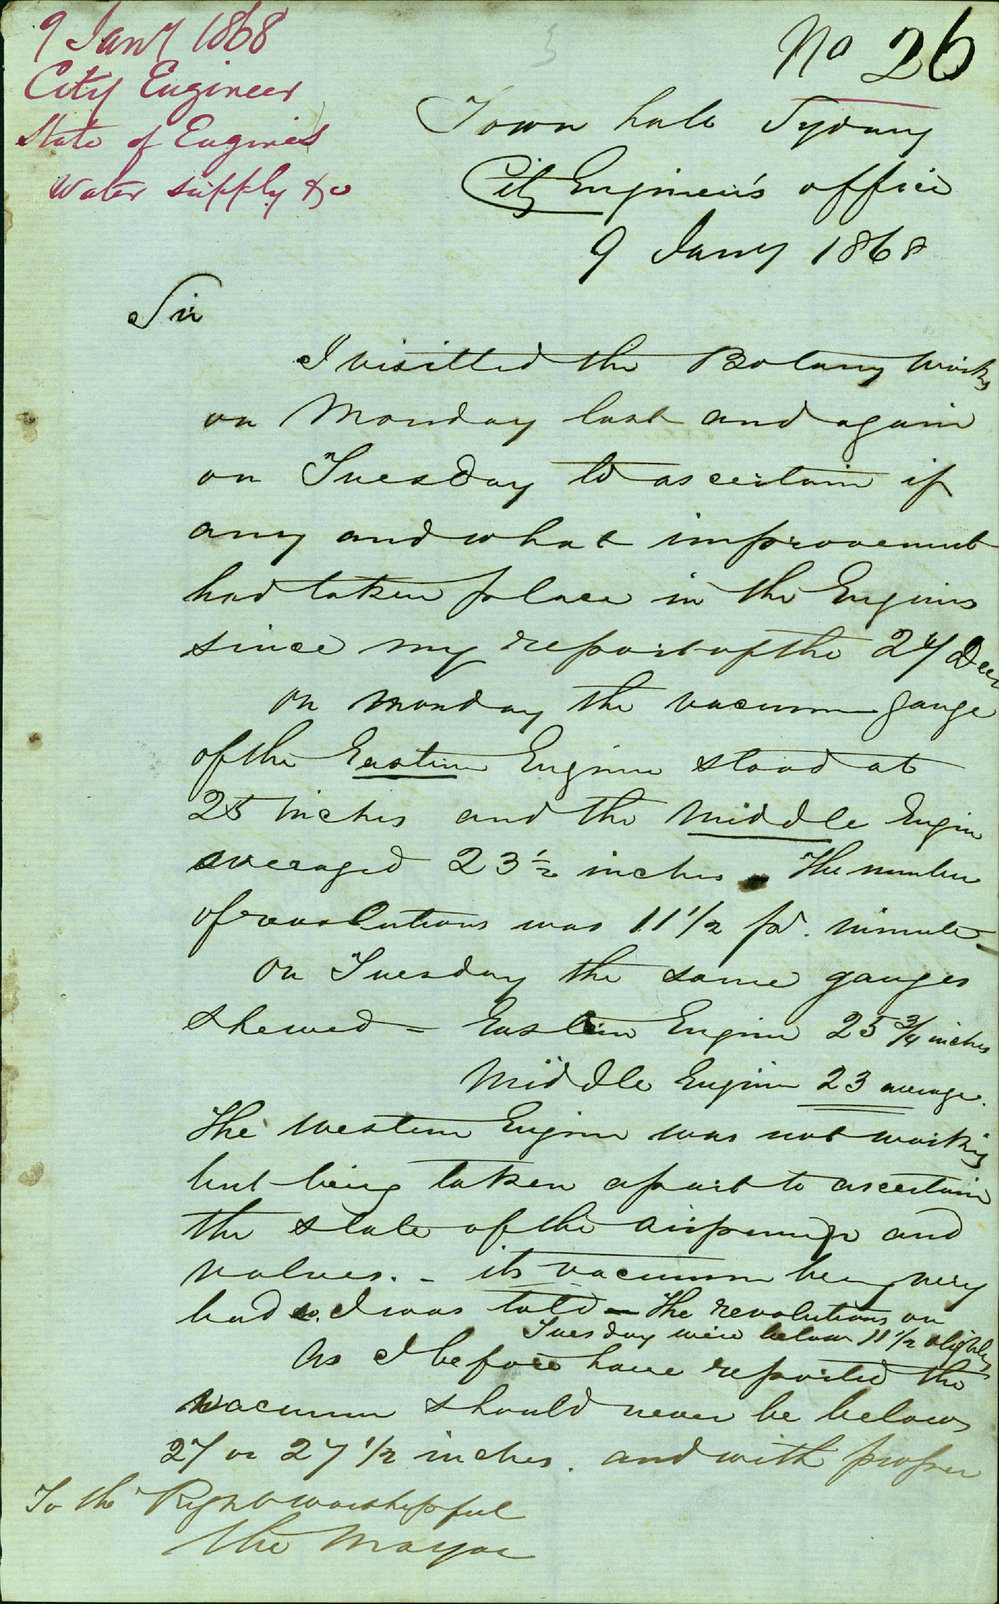 9 Jany 1868
City Engineer
State of Engines
Water supply &c
No 26
Town hall Sydney
City Engineer's office
9 Jany 1868
Sir
I visitted the Botany Works
on Monday last and again
on Tuesday to ascertain if
any and what improvement
had taken place in the Engines
since my report of the 24 Decr
On Monday the vacuum gauge
of the Eastern Engine stood at
25 inches and the Middle Engine
averaged 23 1/2 inches. The number
of revolutions was 11 1/2 pr. minute
On Tuesday the same gauges
shewed = Eastern Engine 25 3/4 inches
Middle Engine 23 average.
The Western Engine was not working
but being taken apart to ascertain
the state of the air pump and
valves. - its vacuum being very
bad so I was told - The revolutions on
Tuesday were below 11 1/2 slightly
As I before have reported the
vacuum should never be below
27 or 27 1/2 inches. and with proper
To the Right worshipful
the Mayor